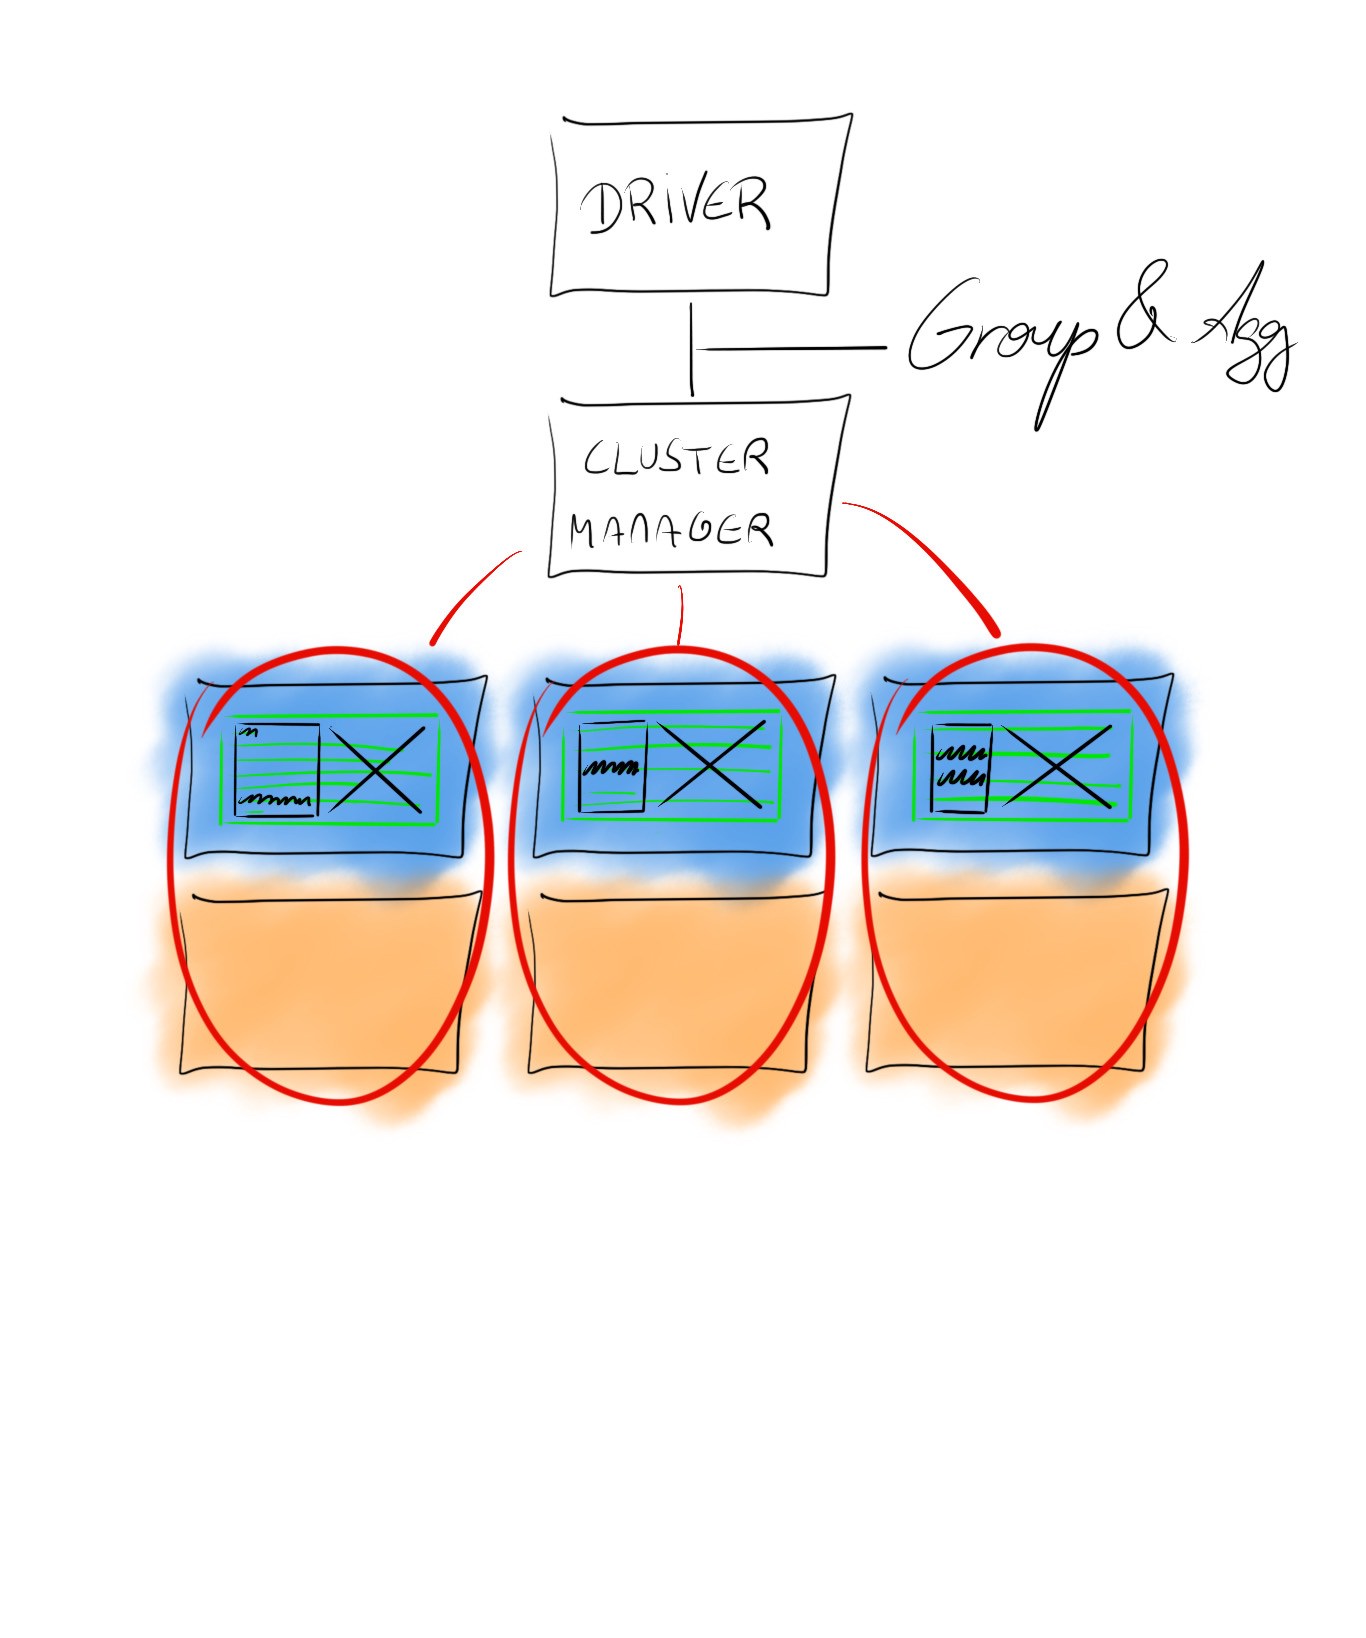 DRIVER
Group & Agg
CLUSTER
MANAGER